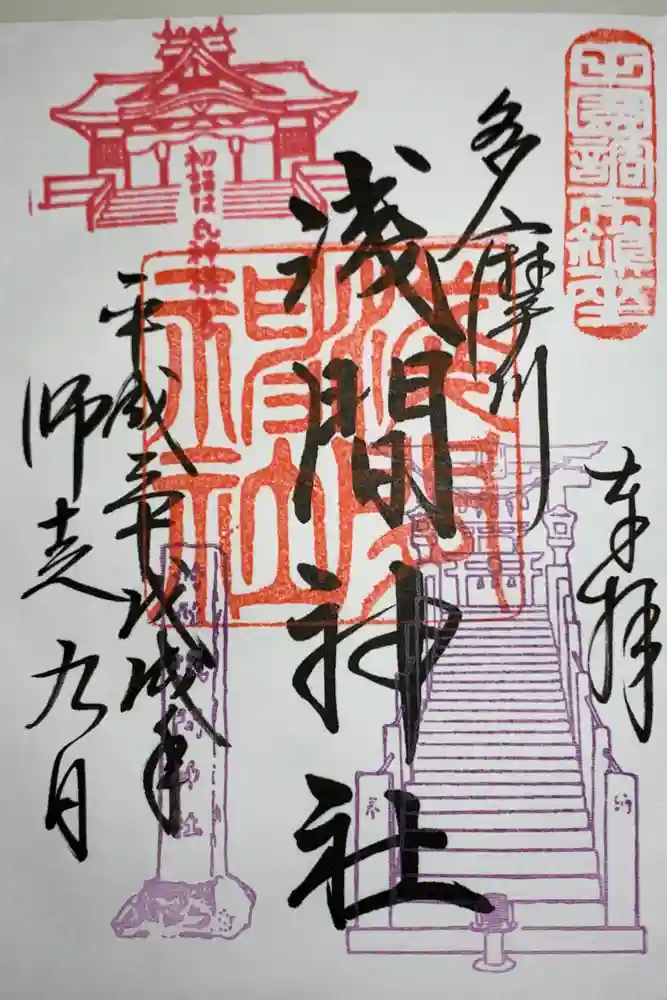 田園調布鎮座
奉拝
多摩川
浅間神社
淺間神社
初詣は氏神様
平成三十戊戌年
師走九日
奉
納